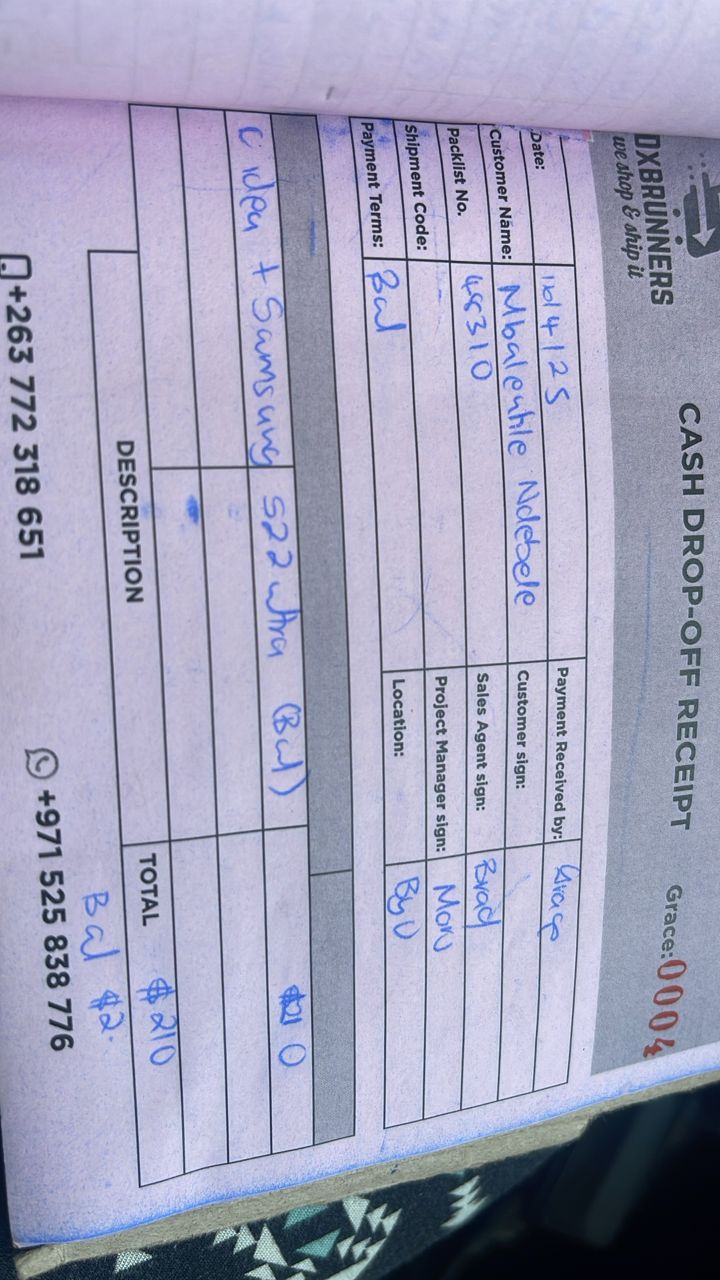 DXBRUNNERS
we shop & ship it
CASH DROP-OFF RECEIPT
Grace: 0004
Date: 16/4/25
Payment Received by: Grace
Customer Name: Ndebele
Customer sign:
Packlist No. 48310
Sales Agent sign: Brad
Shipment Code:
Project Manager sign:
Payment Terms: Bal
Location: ByO
idea + Samsung S22 ultra (Bal) $210
DESCRIPTION
TOTAL $210
Bal $2.
+263 772 318 651
+971 525 838 776